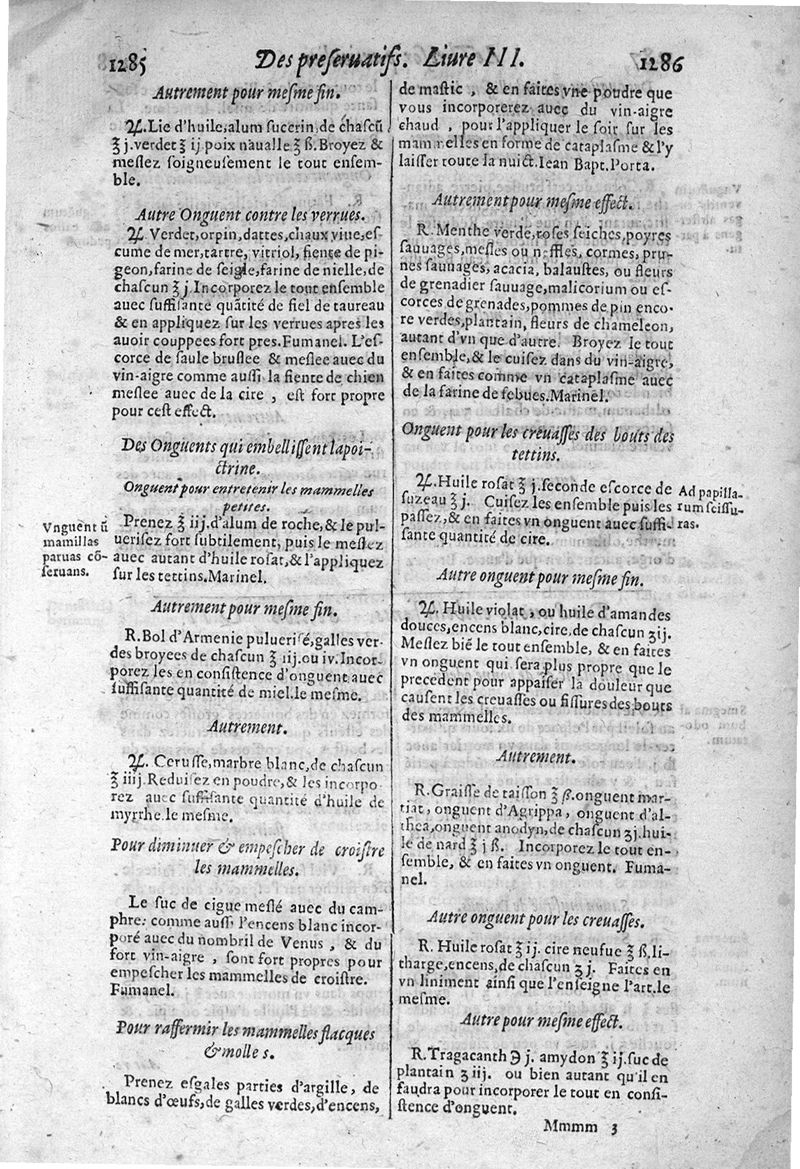 1285 Des preseruatifs. Liure III. 1286
Autrement pour mesme fin.
♃. Lie d'huile, alum succrin, de chascũ
℥ j. verdet ℥ ij poix naualle ℥ ß. Broyez &
meslez soigneusement le tout ensem-
ble.
Autre Onguent contre les verrues.
♃. Verdet, orpin, dattes, chaux viue, es-
cume de mer, tartre, vitriol, fiente de pi-
geon, farine de seigle, farine de nielle, de
chascun ℥ j. Incorporez le tout ensemble
auec suffisante quãtité de fiel de taureau
& en appliquez sur les verrues apres les
auoir couppees fort pres. Fumanel. L'es-
corce de saule bruslee & meslee auec du
vin-aigre comme aussi la fiente de chien
meslee auec de la cire, est fort propre
pour cest effect.
Des Onguents qui embellissent la poi-
ctrine.
Onguent pour entretenir les mammelles
petites.
Vnguent ũ
mamillas
paruas cõ-
seruans.
Prenez ℥ iij. d'alum de roche, & le pul-
uerisez fort subtilement, puis le meslez
auec autant d'huile rosat, & l'appliquez
sur les tettins. Marinel.
Autrement pour mesme fin.
R. Bol d'Armenie puluerisé, galles ver-
des broyees de chascun ℥ iij. ou iv. Incor-
porez les en consistence d'onguent auec
suffisante quantité de miel. le mesme.
Autrement.
♃. Cerusse, marbre blanc, de chascun
℥ iiij. Reduisez en poudre, & les incorpo
rez auec suffisante quantité d'huile de
myrrhe. le mesme.
Pour diminuer & empescher de croistre
les mammelles.
Le suc de cigue meslé auec du cam-
phre: comme aussi l'encens blanc incor-
poré auec du nombril de Venus, & du
fort vin-aigre, sont fort propres pour
empescher les mammelles de croistre.
Fumanel.
Pour raffermir les mammelles flacques
& molles.
Prenez esgales parties d'argille, de
blancs d'œufs, de galles verdes, d'encens,
de mastic, & en faites vne poudre que
vous incorporerez auec du vin-aigre
chaud, pour l'appliquer le soir sur les
mammelles en forme de cataplasme & l'y
laisser toute la nuict. Iean Bapt. Porta.
Autrement pour mesme effect.
R. Menthe verde, roses seiches, poyres
sauuages, mesles ou neffles, cormes, pru-
nes sauuages, acacia, balaustes, ou fleurs
de grenadier sauuage, malicorium ou es-
corces de grenades, pommes de pin enco-
re verdes, plantain, fleurs de chameleon,
autant d'vn que d'autre. Broyez le tout
ensemble, & le cuisez dans du vin-aigre,
& en faites comme vn cataplasme auec
de la farine de febues. Marinel.
Onguent pour les creuasses des bouts des
tettins.
♃. Huile rosat ℥ j. seconde escorce de
suzeau ℥ j. Cuisez les ensemble puis les
passez, & en faites vn onguent auec suffi-
sante quantité de cire.
Ad papilla-
rum scissu-
ras.
Autre onguent pour mesme fin.
♃. Huile violat, ou huile d'amandes
douces, encens blanc, cire, de chascun ʒ ij.
Meslez bié le tout ensemble, & en faites
vn onguent qui sera plus propre que le
precedent pour appaiser la douleur que
causent les creuasses ou fissures des bouts
des mammelles.
Autrement.
R. Graisse de taisson ℥ ß. onguent mar-
tiat, onguent d'Agrippa, onguent d'al-
thea, onguent anodyn, de chascun ʒ j. hui-
le de nard ℥ j ß. Incorporez le tout en-
semble, & en faites vn onguent. Fuma-
nel.
Autre onguent pour les creuasses.
R. Huile rosat ℥ ij. cire neufue ℥ ß. li-
tharge, encens, de chascun ℥ j. Faites en
vn liniment ainsi que l'enseigne l'art. le
mesme.
Autre pour mesme effect.
R. Tragacanth ℈ j. amydon ℥ ij. suc de
plantain ʒ iij. ou bien autant qu'il en
faudra pour incorporer le tout en consi-
stence d'onguent.
Mmmm 3